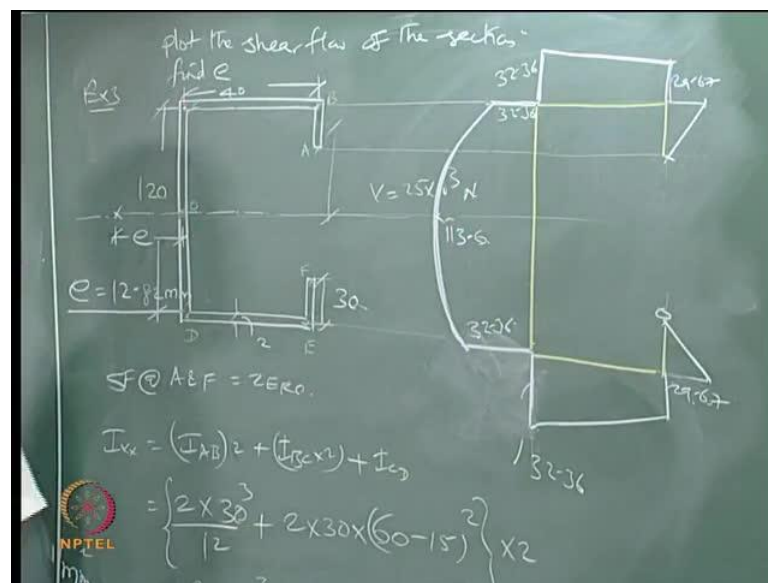 plot the shear flow of the section.
find e
Ex3
40
B
A
120
O
e
e = 12.82mm
D
2
E
F
30
V = 25x10³ N
32.36
32.36
29.67
113.6
32.36
32.36
29.67
SF @ A&F = ZERO.
Ixx = (I_AB)2 + (I_BC x2) + I_CD
= {2 x 30³/12 + 2x30x(60-15)²} x2
NPTEL